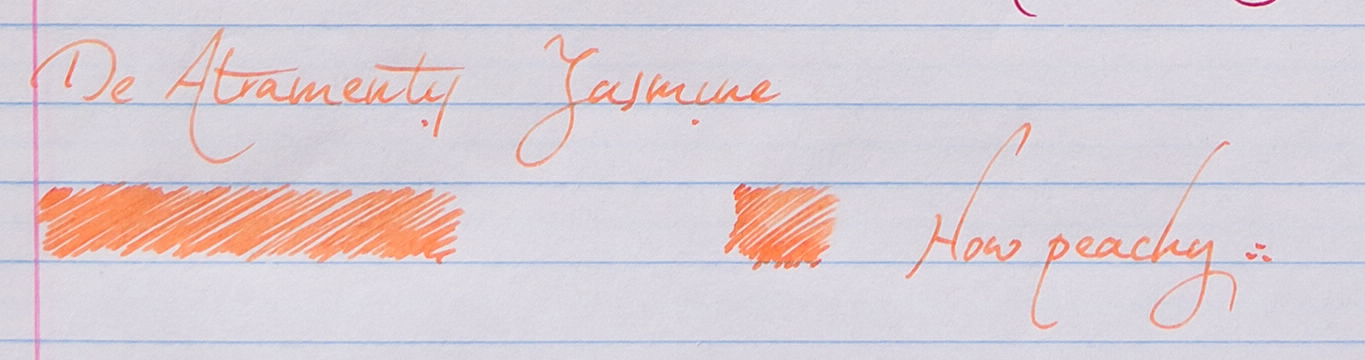 De Atramentis Jasmine
How peachy ∴